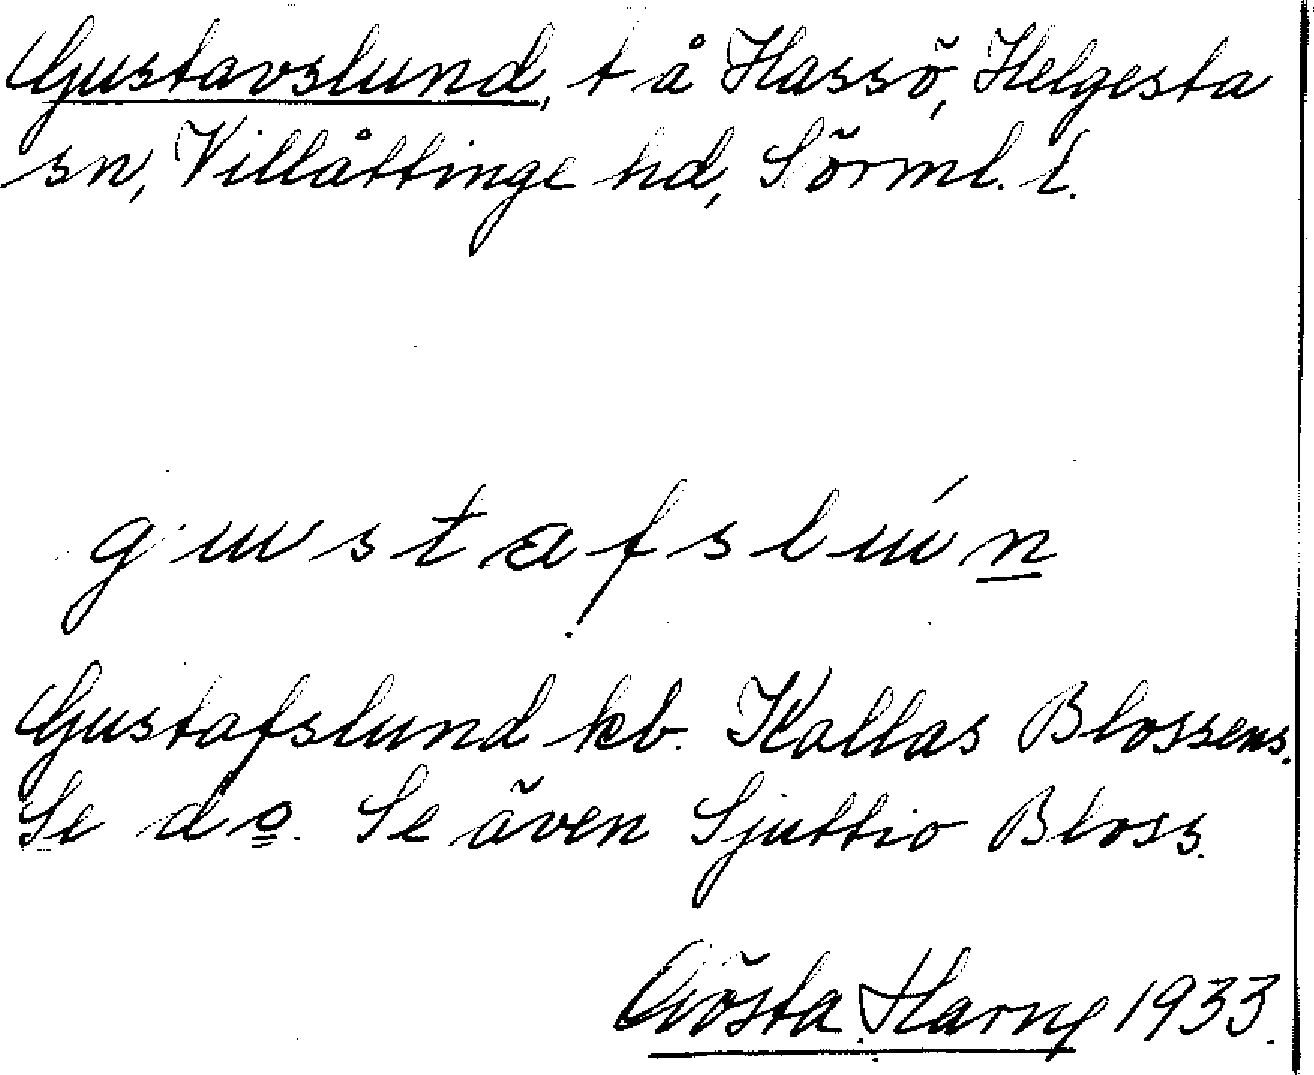 Gustavslund, t å Hassö, Helgesta
sn, Villåttinge hd, Sörml. l.
gustafslún
Gustafslund kb. Kallas Blossens.
Se do. Se även Sjuttio Bloss.
Gösta Harny 1933.